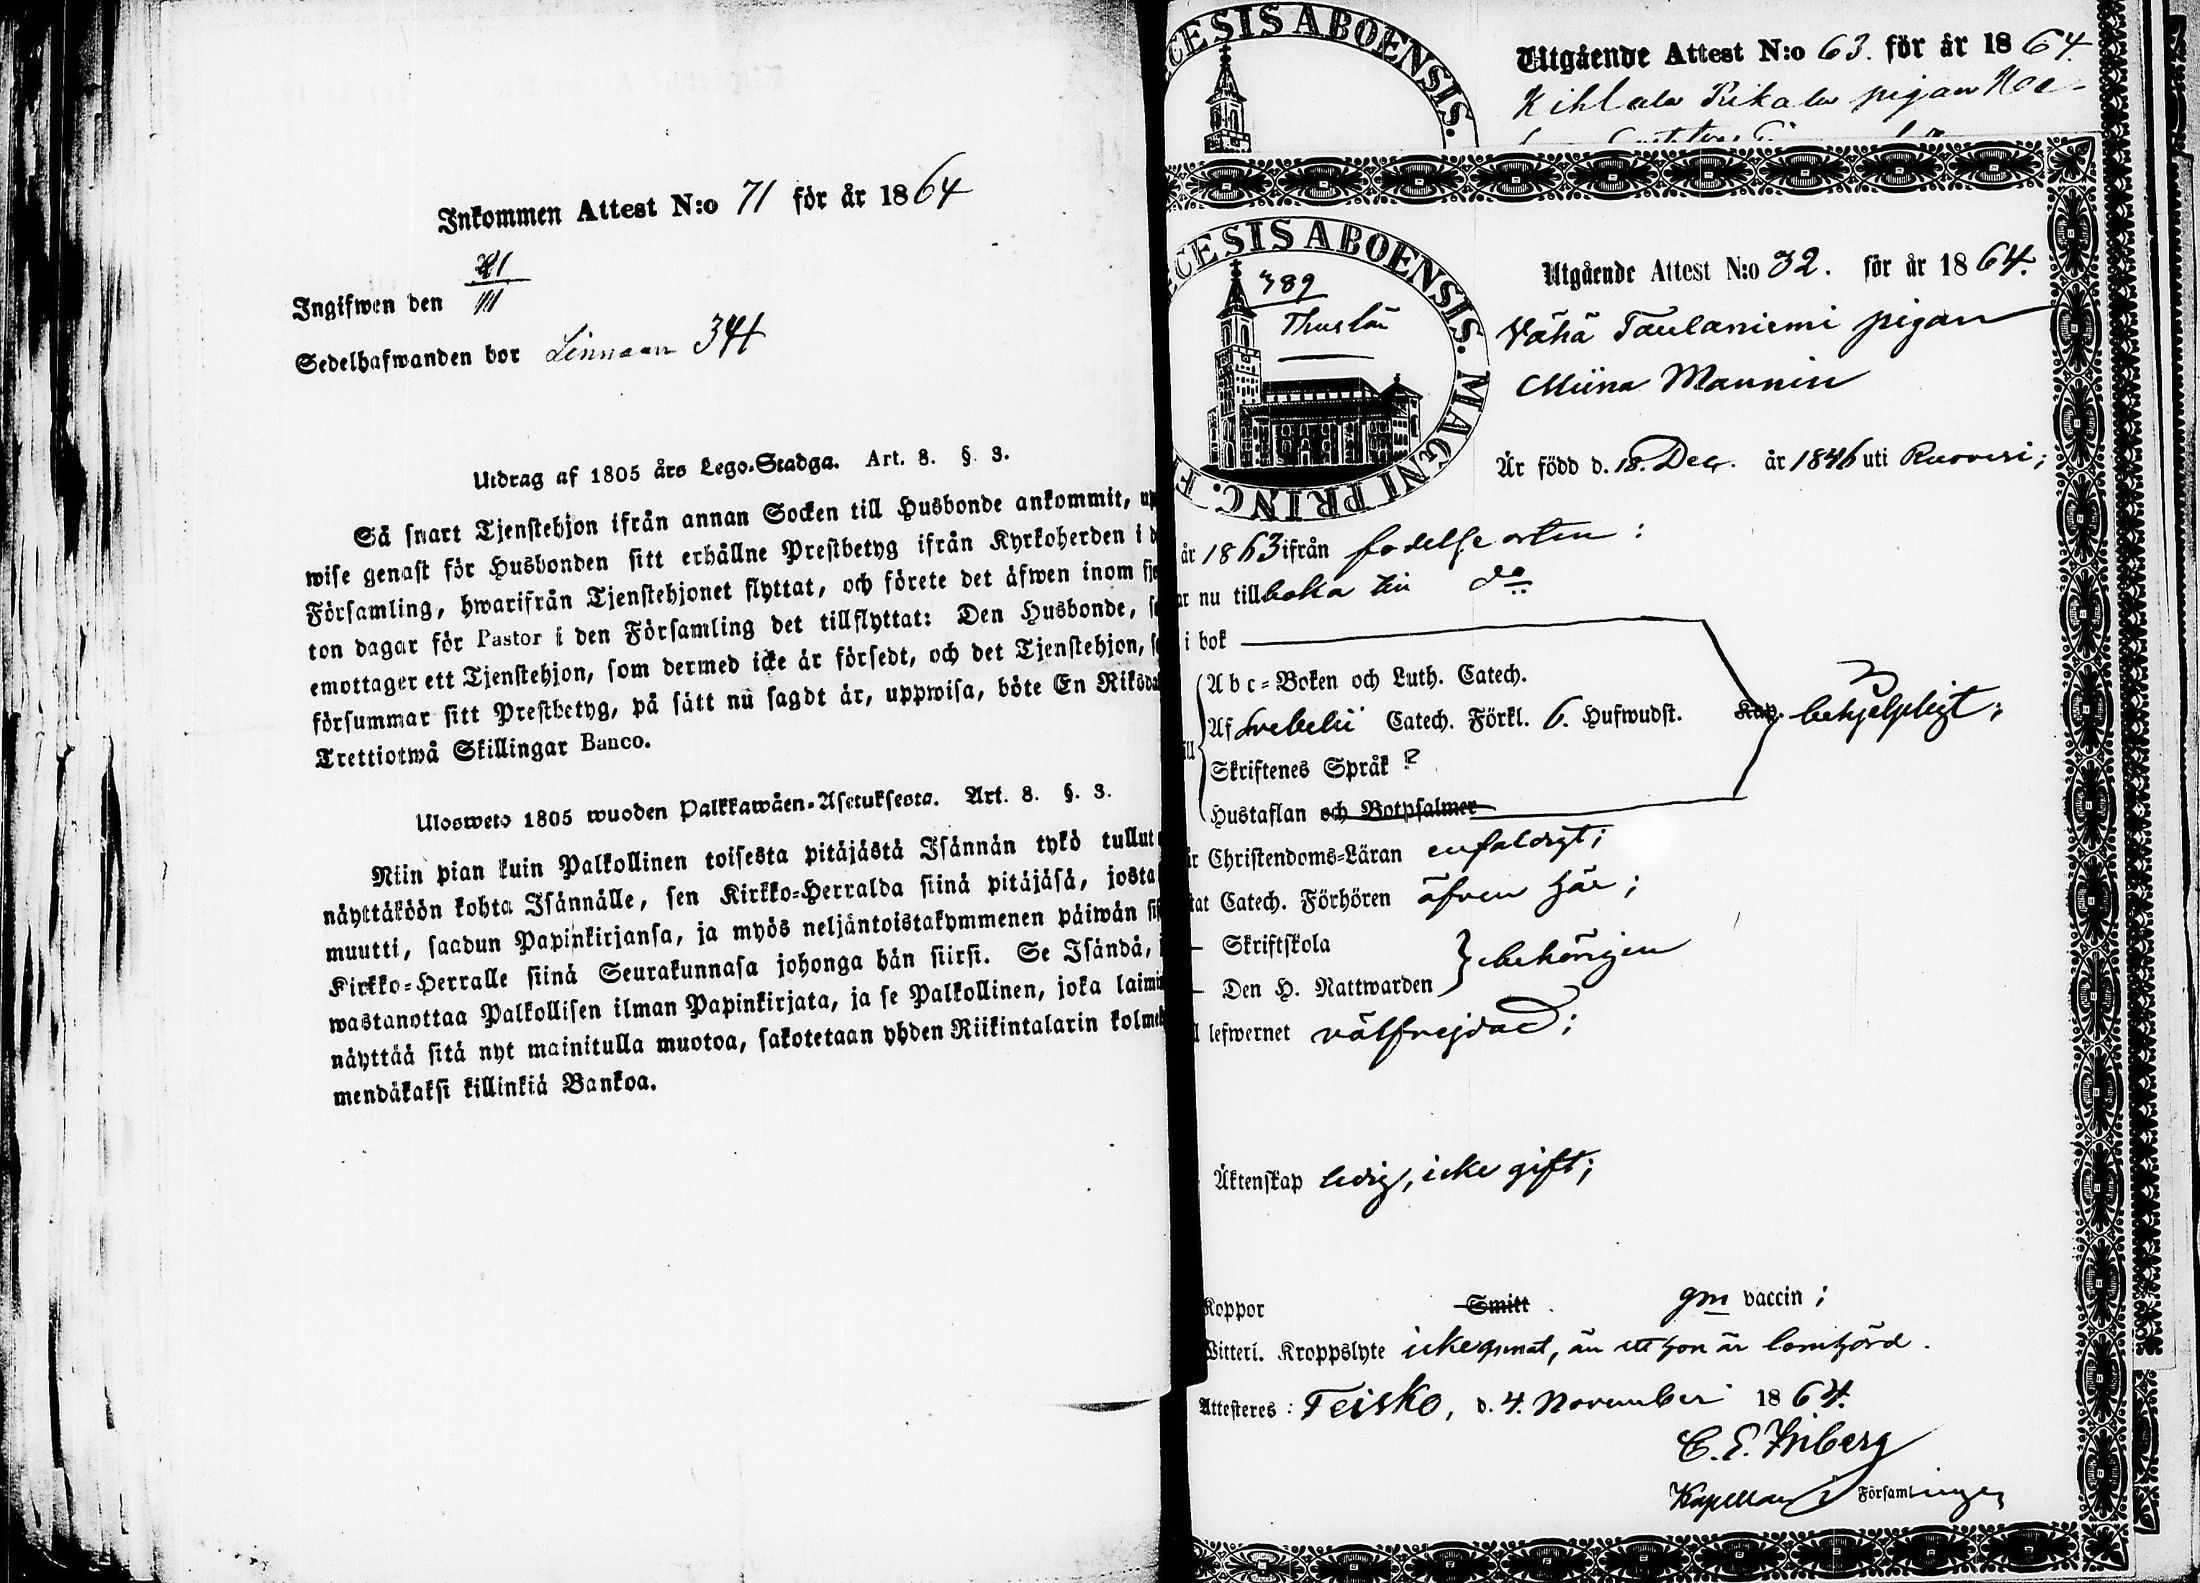 Inkommen Attest N:o 71 för år 1864
Ingifwen den
Sedelhafwanden bor Linnaan 344
Utdrag af 1805 års Lego-Stadga. Art. 8. §. 3.
Så snart Tjenstehjon ifrån annan Socken till Husbonde ankommit, up
wise genast för Husbonden sitt erhållne Prestbetyg ifrån Kyrkoherden i d
Församling, hwarifrån Tjenstehjonet flyttat, och förete det äfwen inom fje
ton dagar för Pastor i den Församling det tillflyttat: Den Husbonde, s
emottager ett Tjenstehjon, som dermed icke är försedt, och det Tjenstehjon, s
försummar sitt Prestbetyg, på sätt nu sagdt är, uppwisa, böte En Riksda
Trettiotwå Skillingar Banco.
Ulosweto 1805 wuoden Palkkawäen-Asetuksesta. Art. 8. §. 3.
Niin pian kuin Palkollinen toisesta pitäjästä Isännän tykö tullut
näyttäköön kohta Isännälle, sen Kirkko-Herralda siinä pitäjäsä, josta
muutti, saadun Papinkirjansa, ja myös neljäntoistakymmenen päiwän sis
Kirkko-Herralle siinä Seurakunnasa johonga hän siirsi. Se Isändä,
wastanottaa Palkollisen ilman Papinkirjata, ja se Palkollinen, joka laimi
näyttää sitä nyt mainitulla muotoa, sakotetaan yhden Riikintalarin kolme
mendäkaksi killinkiä Bankoa.
CESIS ABOENSIS.
Utgående Attest N:o 63. för år 1864.
Kihlala Pikala pigan
CESIS ABOENSIS. MAGNI PRINC. F
389
Utgående Attest N:o 32. för år 1864.
Vähä Taulaniemi pigan
Miina Mannin
Är född d. 18. Dec. år 1846 uti Ruovesi;
år 1863 ifrån födelseorten:
ar nu tillbaka till do
i bok
Abc-Boken och Luth. Catech.
Af Svebelii Catech. Förkl. 6. Hufwudst. Kap. behjelpligt;
Skriftenes Språk ?
Hustaflan och Botpsalmer
är Christendoms-Läran enfaldigt;
tat Catech. Förhören äfven här;
Skriftskola
Den H. Nattwarden behörigen
l lefwernet välfrejdad;
Äktenskap ledig, icke gift;
Koppor Smitt gm vaccin;
Witterl. Kroppslyte icke annat, än att hon är lomhörd.
Attesteres: Teisko, d. 4. November 1864.
C. E. Friberg
Kapellan i Församlingen